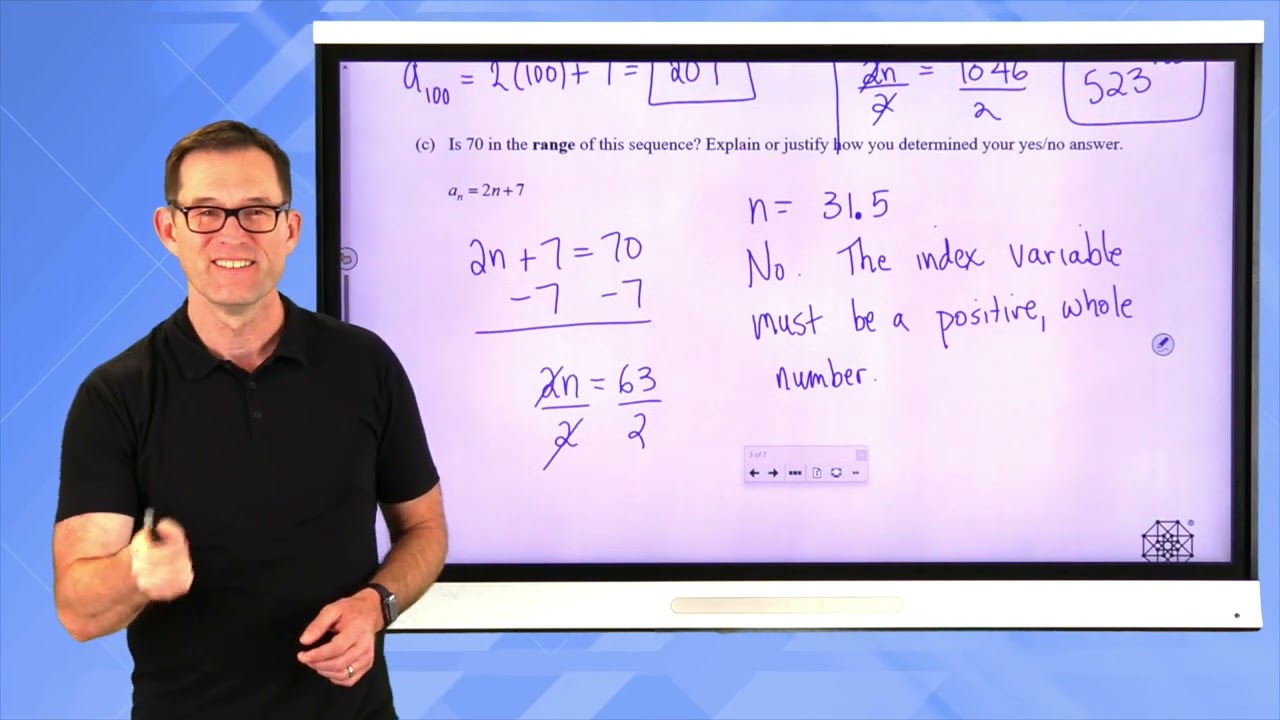 a₁₀₀ = 2(100) + 7 = 207
2n/2 = 1046/2
523
(c) Is 70 in the range of this sequence? Explain or justify how you determined your yes/no answer.
aₙ = 2n+7
2n + 7 = 70
-7 -7
2n/2 = 63/2
n = 31.5
No. The index variable
must be a positive, whole
number.
3 of 7
®